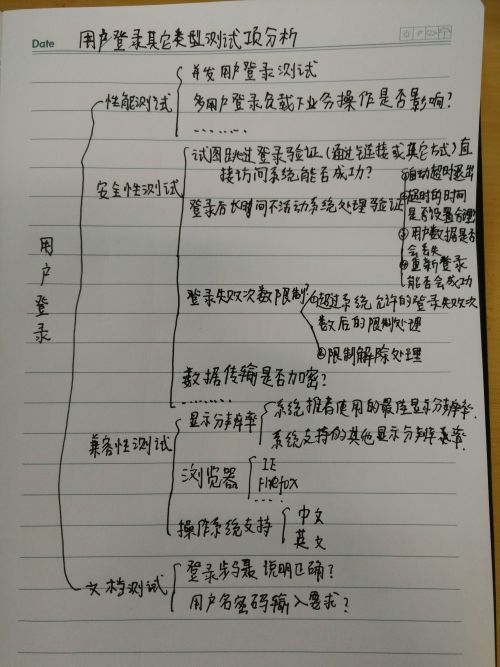 Date 用户登录其它类型测试项分析
并发用户登录测试
性能测试
多用户登录负载下业务操作是否影响?
........
试图跳过登录验证(通过链接或其它方式)直
接访问系统能否成功?
安全性测试
登录后长时间不活动系统处理验证
①自动超时退出
②超时的时间
是否设置合理
③用户数据是否
会丢失
④重新登录
能否会成功
用户登录
登录失败次数限制
①超过系统允许的登录失败次
数后的限制处理
②限制解除处理
数据传输是否加密?
........
兼容性测试
显示分辨率
系统推荐使用的最佳显示分辨率
系统支持的其他显示分辨率
浏览器
IE
Firefox
....
操作系统支持
中文
英文
文档测试
登录步骤说明正确?
用户名密码输入要求?